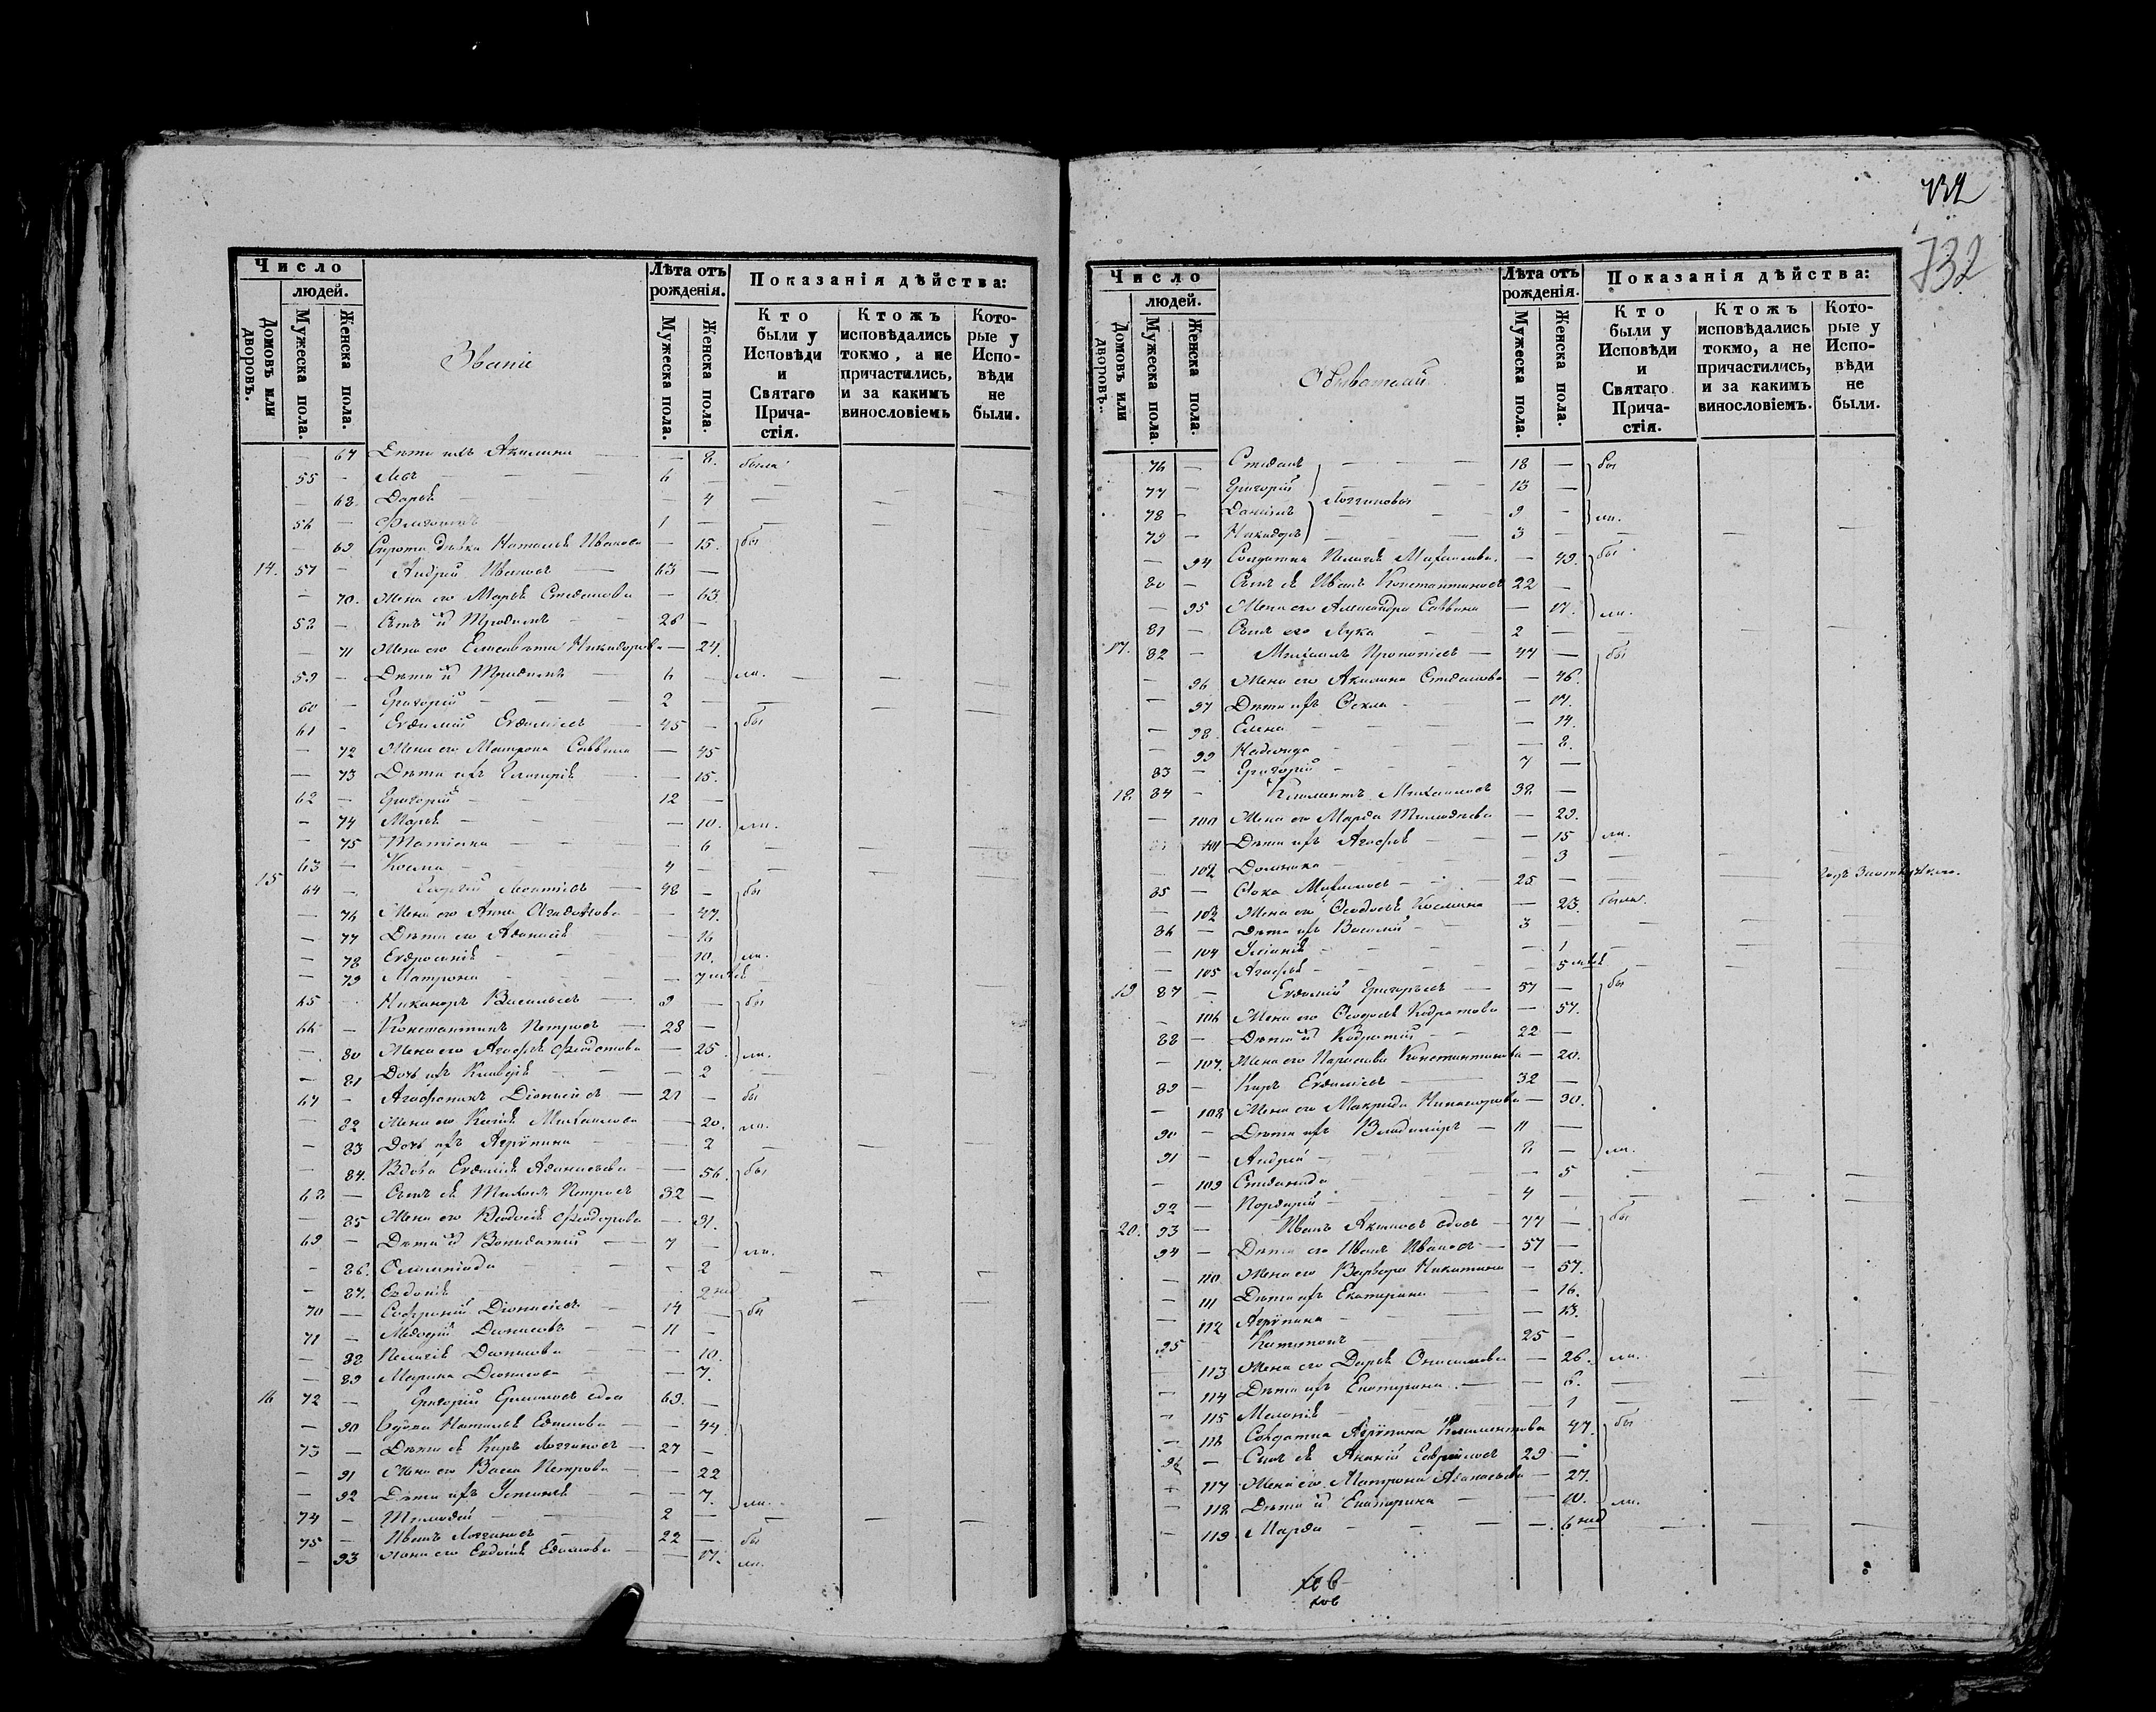 732
732
Число
людей.
Домовъ или дворовъ.
Мужеска пола.
Женска пола.
Званіе
Лѣта отъ рожденія.
Мужеска пола.
Женска пола.
Показанія дѣйства:
Кто были у Исповѣди и Святаго Прича-стія.
Ктожъ исповѣдались токмо, а не причастились, и за какимъ винословіемъ
Кото-рые у Испо-вѣди не были.
— 67 Дѣти ихъ Акилина — 8. была
55 — Левъ 6 —
— 68 Дарья — 4
56 — 1 —
— 69 Сирота дѣвка Наталья Иванова — 15. бы
14. 57 — Андрей Ивановъ 63 —
— 70. Жена его Марья Стефанова — 63.
58 — Сынъ их Трофимъ 26 —
— 71 Жена его Елисавета Никифорова — 24.
59 — Дѣти их Трофимъ 6 — ли.
60 — Григорій 2 —
61 — Евфимій Евфиміевъ 45 — бы
— 72 Жена его Матрона Саввина — 45
— 73 Дѣти ихъ Гликерія — 15.
62 — Григорій 12 —
— 74 Марья — 10. ли.
— 75 Татіана — 6
63 — Косма 4 —
15 64 — Георгій Леонтіевъ 48 — бы
— 76 Жена его Анна Агафонова — 47.
— 77 Дѣти его Афанасія — 16
— 78 Евфросинія — 10. ли.
— 79 Матрона — 7
65 — Никаноръ Васильевъ 9 — бы
66 — Константинъ Петровъ 28 —
— 80 Жена его Агафья Федотова — 25. ли.
— 81 Дочь ихъ Клавдія — 2
67 — Агафоникъ Діонисіевъ 21 — бы
— 82 Жена его Ксенія Михаилова — 20. ли.
— 83 Дочь ихъ Агрипина — 2
— 84. Вдова Евфимія Афанасьева — 56. бы
68 — Сынъ ея Тихонъ Петровъ 32 —
— 85 Жена его Феодосія Феодорова — 31.
69 — Дѣти их Вонифатій 7 — ли.
— 86. Олимпіада — 2
— 87. Евдокія 2 нед
70 — Софроній Діонисіевъ 14 — бы
71 — Мефодій Діонисовъ 11 —
— 88 Пелагія Діонисова — 10.
— 89 Марина Діонисова — 7.
16 72 — Григорій Ермиловъ вдов 69. —
— 90 Вдова Наталья Ефимова — 44.
73 — Дѣти ея Киръ Логгиновъ 27 —
— 91 Жена его Васса Петрова — 22
— 92 Дѣти ихъ Устинья — 7. ли.
74 — Тимофей 2 —
75 — Иванъ Логгиновъ 22 — бы
— 93 Жена его Евдокія Ефимова — 17. ли.
Число
людей.
Домовъ или дворовъ.
Мужеска пола.
Женска пола.
Обывателей
Лѣта отъ рожденія.
Мужеска пола.
Женска пола.
Показанія дѣйства:
Кто были у Исповѣди и Святаго Прича-стія.
Ктожъ исповѣдались токмо, а не причастились, и за какимъ винословіемъ.
Кото-рые у Испо-вѣди не были.
76 — Стефанъ 18 — бы
77 — Григорій 13 —
Логгиновы
78 — Даніилъ 9 — ли.
79 — Никифоръ 3 —
— 94 Солдатка Пелагія Михаилова — 49. бы
80 — Сынъ ея Иванъ Константиновъ 22 —
— 95 Жена его Александра Саввина — 17. ли.
81 — Сынъ его Лука 2 —
17. 82 — Михаилъ Прокопіевъ 47 — бы
— 96 Жена его Акилина Стефанова — 46.
— 97 Дѣти ихъ Фекла — 17.
— 98. Елена — 14.
— 99 Надежда — 8.
83 — Григорій 7 —
18. 84 — Климентъ Михаиловъ 32 —
— 100 Жена его Марфа Тимофеева — 29.
101 Дѣти ихъ Агафья — 15 ли.
— 102 Домника — 3
85 — Фока Михаиловъ 25 —
— 103 Жена его Феодосія Космина — 23. была
86 — Дѣти ихъ Василій 3 —
— 104 Уліанія — 1
— 105 Агафья — 5
19 87 — Евфимій Григорьевъ 57 — бы
— 106 Жена его Феодосія Кодратова — 57.
88 — Дѣти их Кодратій 22 —
— 107. Жена его Параскева Константинова — 20.
89 — Киръ Евфиміевъ 32 —
— 108 Жена его Макрида Никанорова — 30.
90 — Дѣти ихъ Владиміръ 11 —
91 — Андрей 8 — ли.
— 109 Стефанида — 5
92 — Порфирій 4 —
20. 93 — Иванъ Акимовъ вдов 77 — бы
94 — Дѣти его Иванъ Ивановъ 57 —
— 110 Жена его Варвара Никитина — 57.
— 111 Дѣти ихъ Екатерина — 16.
— 112 Агрипина — 13.
95 Капитонъ 25 —
— 113 Жена его Дарья Онисимова — 26. ли.
— 114 Дѣти ихъ Екатерина — 6.
— 115 Меланія — 1
— 116 Солдатка Агрипина Климентова 47. бы
96 — Сынъ ея Ананій Гавриловъ 29 —
— 117 Жена его Матрона Афанасьева — 27.
— 118 Дѣти их Екатерина — 10. ли.
— 119. Марфа — 6 нед